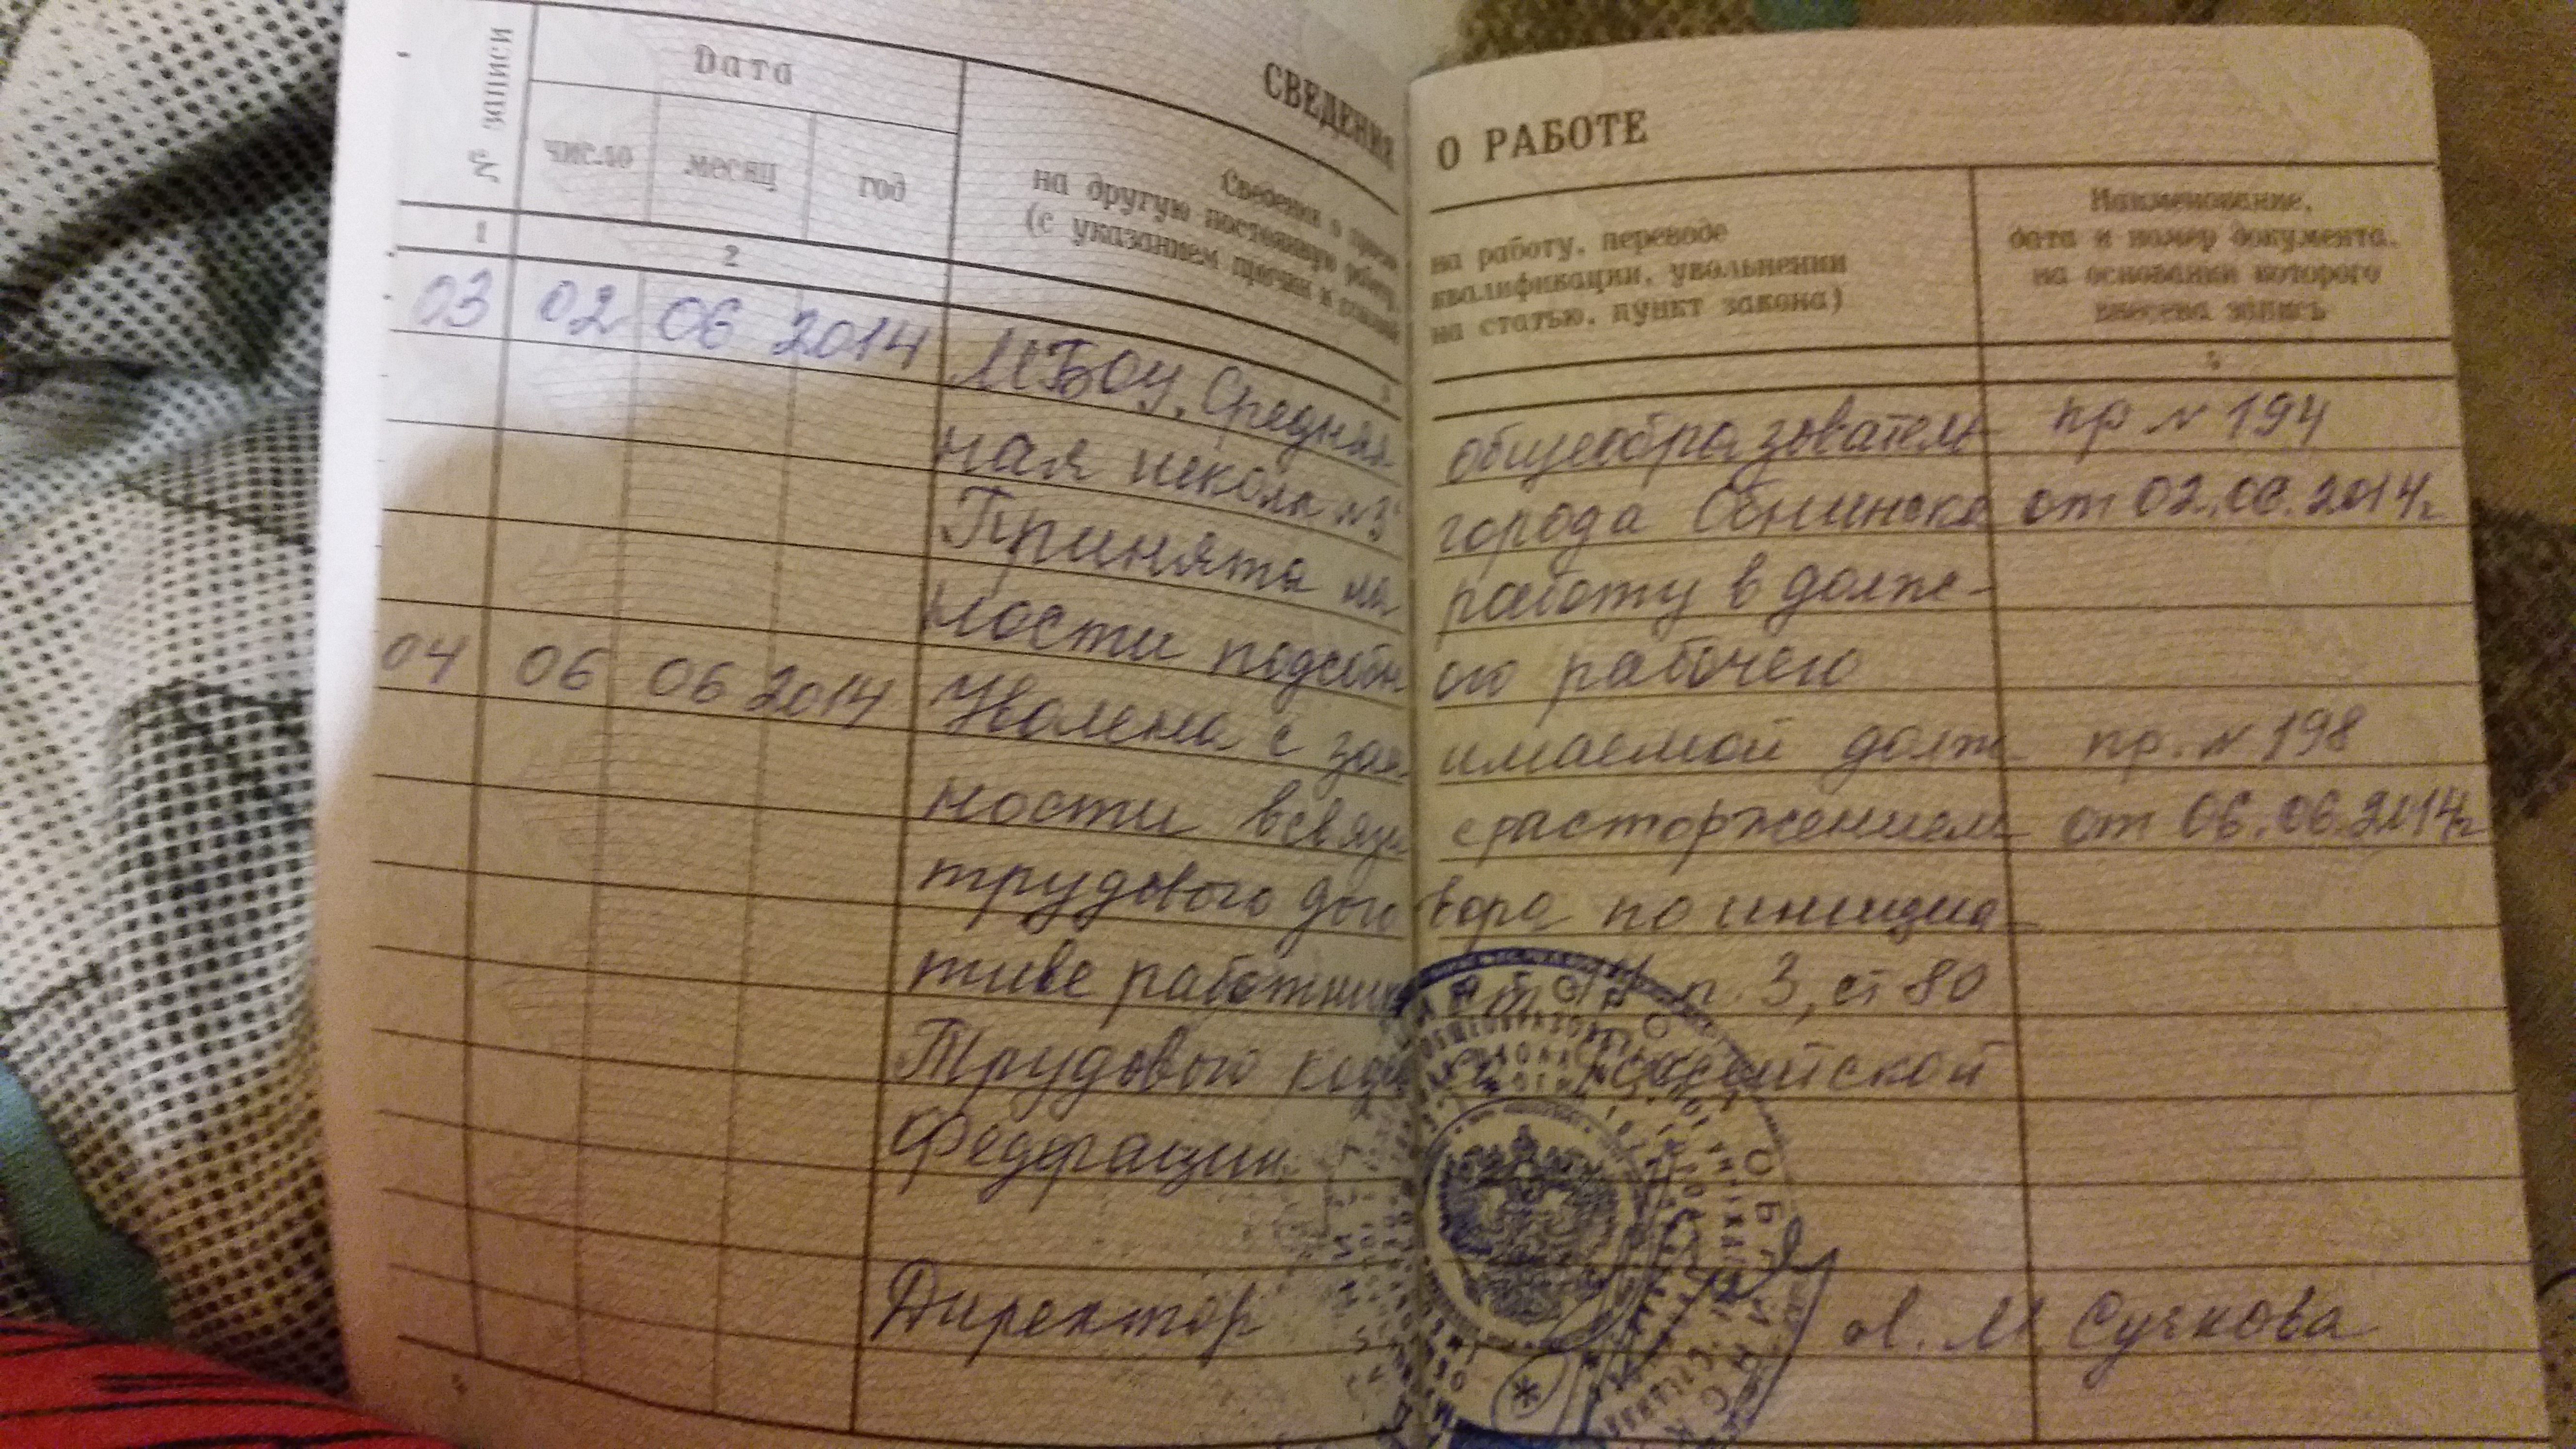 СВЕДЕНИЯ О РАБОТЕ
№ записи
Дата
число месяц год
Сведения о
на другую постоянную работу,
(с указанием причин и
на работу, переводе
квалификации, увольнении
на статью, пункт закона)
Наименование,
дата и номер документа,
на основании которого
внесена запись
1 2 3
03 02 06 2014 МБОУ "Средняя общеобразователь пр № 194
ная школа города Обнинска от 02.06.2014г.
Принята на работу в долж-
ности подсобного рабочего
04 06 06 2014 Уволена с занимаемой долж пр. № 198
ности в связи с расторжением от 06.06.2014г
трудового договора по инициа
тиве работника п. 3, ст 80
Трудового кодекса Российской
Федерации.
Директор Л. М Сучкова